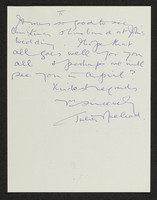 It was so good to see
Christmas & husband at the
wedding. Hope that
all goes well for you
all & perhaps we will
see you in April?
Kindest regards
Yr sincerely